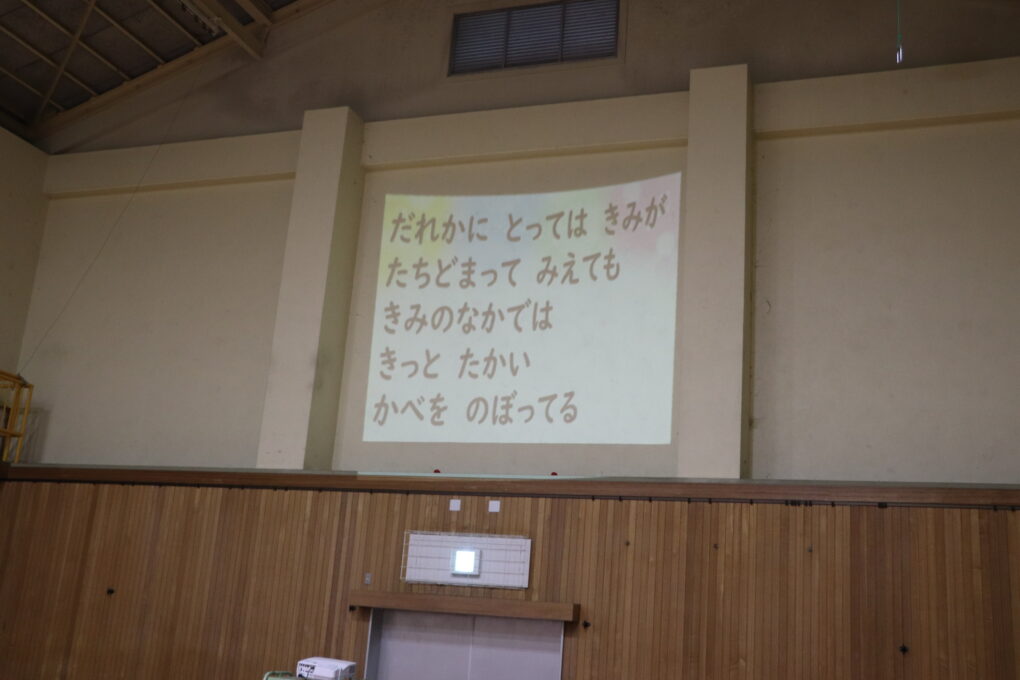 だれかに とっては きみが
たちどまって みえても
きみのなかでは
きっと たかい
かべを のぼってる